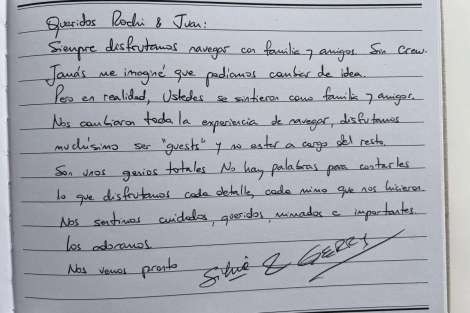 Queridos Rochi & Juan:
Siempre disfrutamos navegar con familia y amigos. Sin Crew.
Jamás me imaginé que podíamos cambiar de idea.
Pero en realidad, Ustedes se sintieron como familia y amigos.
Nos cambiaron toda la experiencia de navegar, disfrutamos
muchísimo ser "guests" y no estar a cargo del resto.
Son unos genios totales No hay palabras para contarles
lo que disfrutamos cada detalle, cada mimo que nos hicieron.
Nos sentimos cuidados, queridos, mimados e importantes.
los adoramos
Nos vemos pronto
Silvia & GERRY